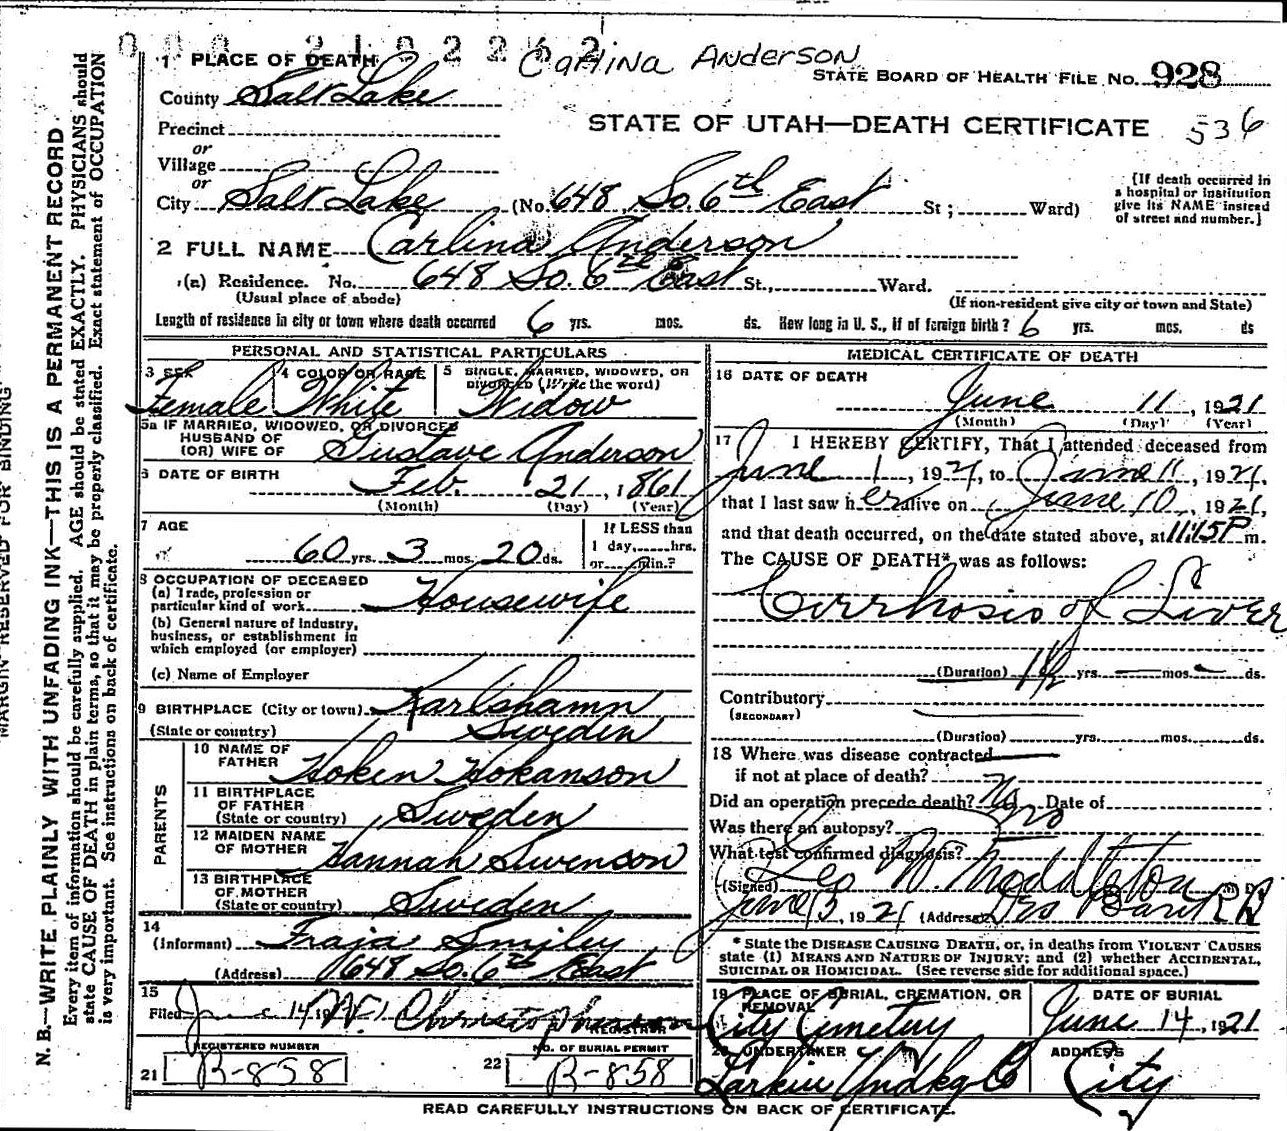 2102252
Carlina Anderson
1 PLACE OF DEATH
STATE BOARD OF HEALTH FILE NO. 928
County Salt Lake
STATE OF UTAH—DEATH CERTIFICATE 536
Precinct
or
Village
or
City Salt Lake (No. 648 So. 6th East St ; Ward)
[If death occurred in a hospital or institution give its NAME instead of street and number.]
2 FULL NAME Carlina Anderson
(a) Residence. No. 648 So. 6th East St., Ward.
(Usual place of abode) (If non-resident give city or town and State)
Length of residence in city or town where death occurred 6 yrs. mos. ds. How long in U. S., if of foreign birth? 6 yrs. mos. ds
PERSONAL AND STATISTICAL PARTICULARS
3 SEX Female
4 COLOR OR RACE White
5 SINGLE, MARRIED, WIDOWED, OR DIVORCED (Write the word) Widow
5a IF MARRIED, WIDOWED, OR DIVORCED
HUSBAND OF
(OR) WIFE OF Gustave Anderson
6 DATE OF BIRTH Feb. 21, 1861
(Month) (Day) (Year)
7 AGE 60 yrs. 3 mos. 20 ds.
If LESS than
1 day, hrs.
or min.?
8 OCCUPATION OF DECEASED
(a) Trade, profession or
particular kind of work Housewife
(b) General nature of Industry,
business, or establishment in
which employed (or employer)
(c) Name of Employer
9 BIRTHPLACE (City or town) Karlshamn
(State or country) Sweden
PARENTS
10 NAME OF
FATHER Hoken Hokanson
11 BIRTHPLACE
OF FATHER
(State or country) Sweden
12 MAIDEN NAME
OF MOTHER Hannah Swenson
13 BIRTHPLACE
OF MOTHER
(State or country) Sweden
14
(Informant) Smiley
(Address) 648 So. 6th East
15
Filed June 14 19 W. Christopherson
REGISTRAR
REGISTERED NUMBER
21 B-858
NO. OF BURIAL PERMIT
22 B-858
MEDICAL CERTIFICATE OF DEATH
16 DATE OF DEATH
June 11, 1921
(Month) (Day) (Year)
17 I HEREBY CERTIFY, That I attended deceased from
June 1, 1921, to June 11, 1921,
that I last saw her alive on June 10, 1921,
and that death occurred, on the date stated above, at 11:15P m.
The CAUSE OF DEATH* was as follows:
Cirrhosis of Liver
(Duration) 1½ yrs. — mos. — ds.
Contributory
(SECONDARY)
(Duration) yrs. mos. ds.
18 Where was disease contracted
if not at place of death?
Did an operation precede death? No Date of
Was there an autopsy? No
What test confirmed diagnosis?
(Signed) Geo W. Middleton M D.
June 13, 1921 (Address)
* State the DISEASE CAUSING DEATH, or, in deaths from VIOLENT CAUSES
state (1) MEANS AND NATURE OF INJURY; and (2) whether ACCIDENTAL,
SUICIDAL OR HOMICIDAL. (See reverse side for additional space.)
19 PLACE OF BURIAL, CREMATION, OR
REMOVAL
City Cemetery
DATE OF BURIAL
June 14, 1921
20 UNDERTAKER
Larkin Undkg Co
ADDRESS
City
READ CAREFULLY INSTRUCTIONS ON BACK OF CERTIFICATE.
MARGIN RESERVED FOR BINDING
N. B.—WRITE PLAINLY WITH UNFADING INK—THIS IS A PERMANENT RECORD
Every item of information should be carefully supplied. AGE should be stated EXACTLY. PHYSICIANS should
state CAUSE OF DEATH in plain terms, so that it may be properly classified. Exact statement of OCCUPATION
is very important. See instructions on back of certificate.